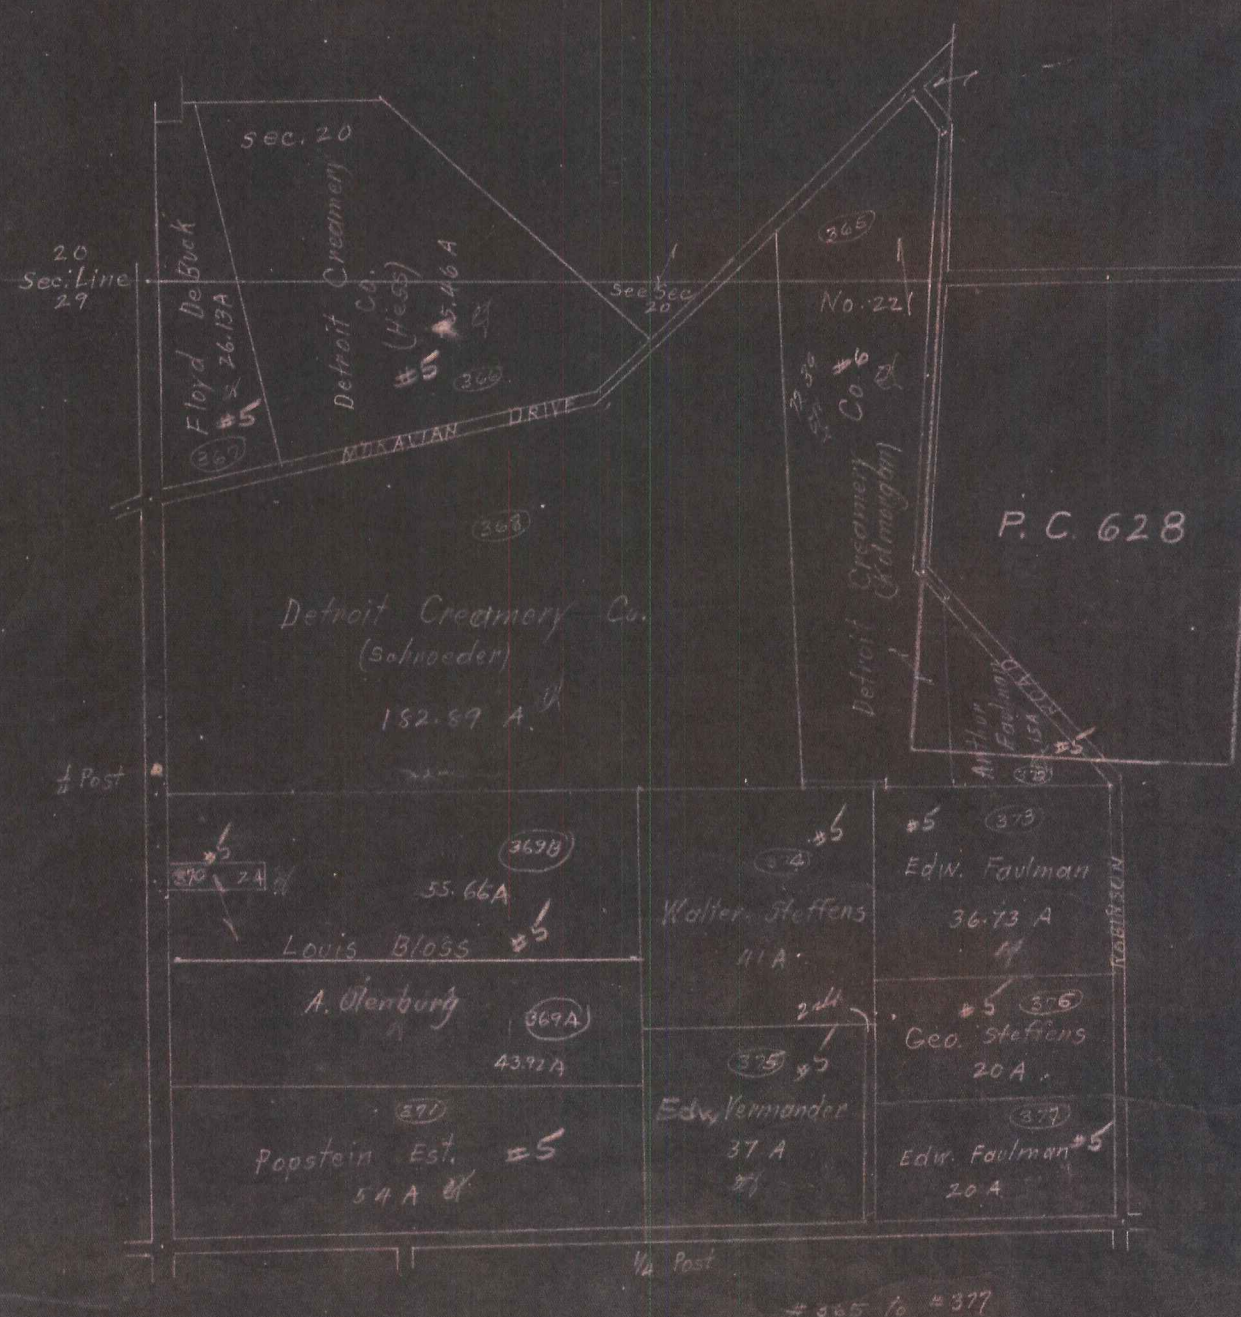 sec. 20
20
Sec. Line
29
Floyd DeBuck
26.13A
#5
367
Detroit Creamery
Co.
(Hess)
5.46 A
#5
366
See Sec
20
365
No. 221
#6
Detroit Creamery Co.
MORAVIAN DRIVE
P. C. 628
368
Detroit Creamery Co.
(Schroeder)
182.89 A.
ROAD
Arthur
Faulman
15A
#5
372
Post
#5
370 2A
369B
55.66A
Louis Bloss
#5
A. Olenburg
369A
43.92A
371
Popstein Est. #5
54 A
#5
374
Walter Steffens
41 A
375
#5
Edw. Vermander
37 A
#5
373
Edw. Faulman
36.73 A
ROBINSON
#5
376
Geo. Steffens
20 A
377
Edw. Faulman #5
20 A
1/4 Post
#365 to #377